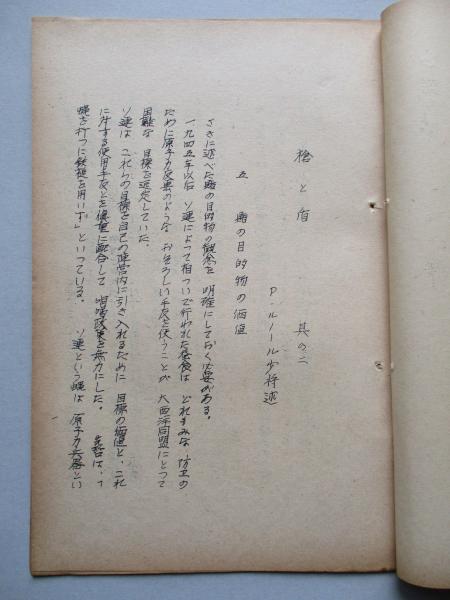 槍と盾 其の二
P・ルノール少将述
五 賭の目的物の価値
さきに述べた賭の目的物の観念を 明確にしておく必要がある。
一九四五年以后 ソ連によって相ついで行われた侵蝕は どれもみな、防卫の
ために原子力兵器のような おそろしい手段を使うことが 大西洋同盟にとつて
困難な 目標を選定していた。
ソ連は これらの目標を自己の陣営内に引き入れるために 目標の価値と、これ
に対する使用手段とを慎重に配合して 政策を無力にした。 は、「
蝿を打つに鉄槌を用いず」といつている。 ソ連という蝿は 原子力兵器とい